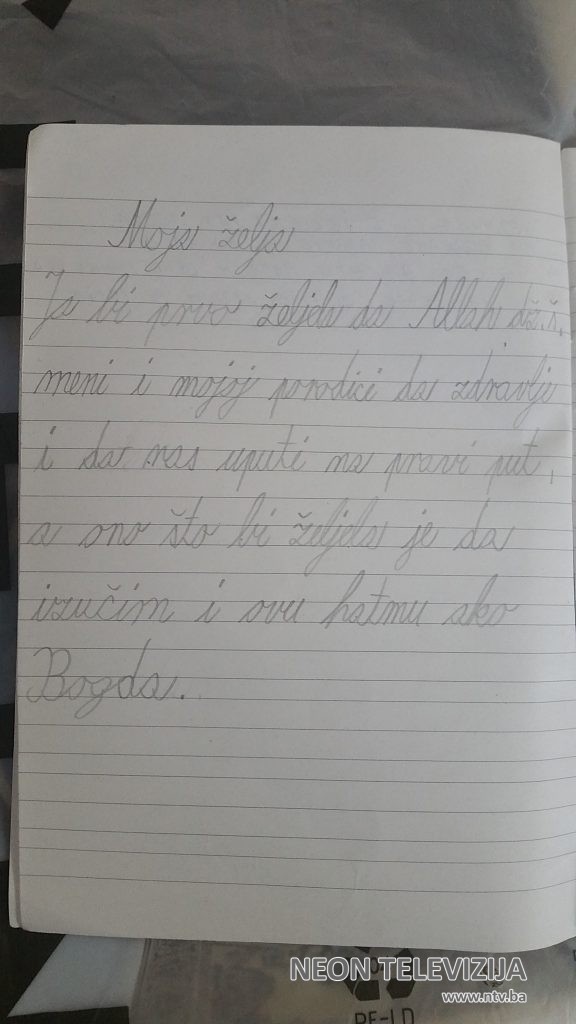 Moja želja
Ja bi prvo željela da Allah dž.š.
meni i mojoj porodici da zdravlje
i da nas uputi na pravi put,
a ono što bi željela je da
izučim i ovu hatmu ako
Bogda.
NEON TELEVIZIJA
www.ntv.ba
PE-LD